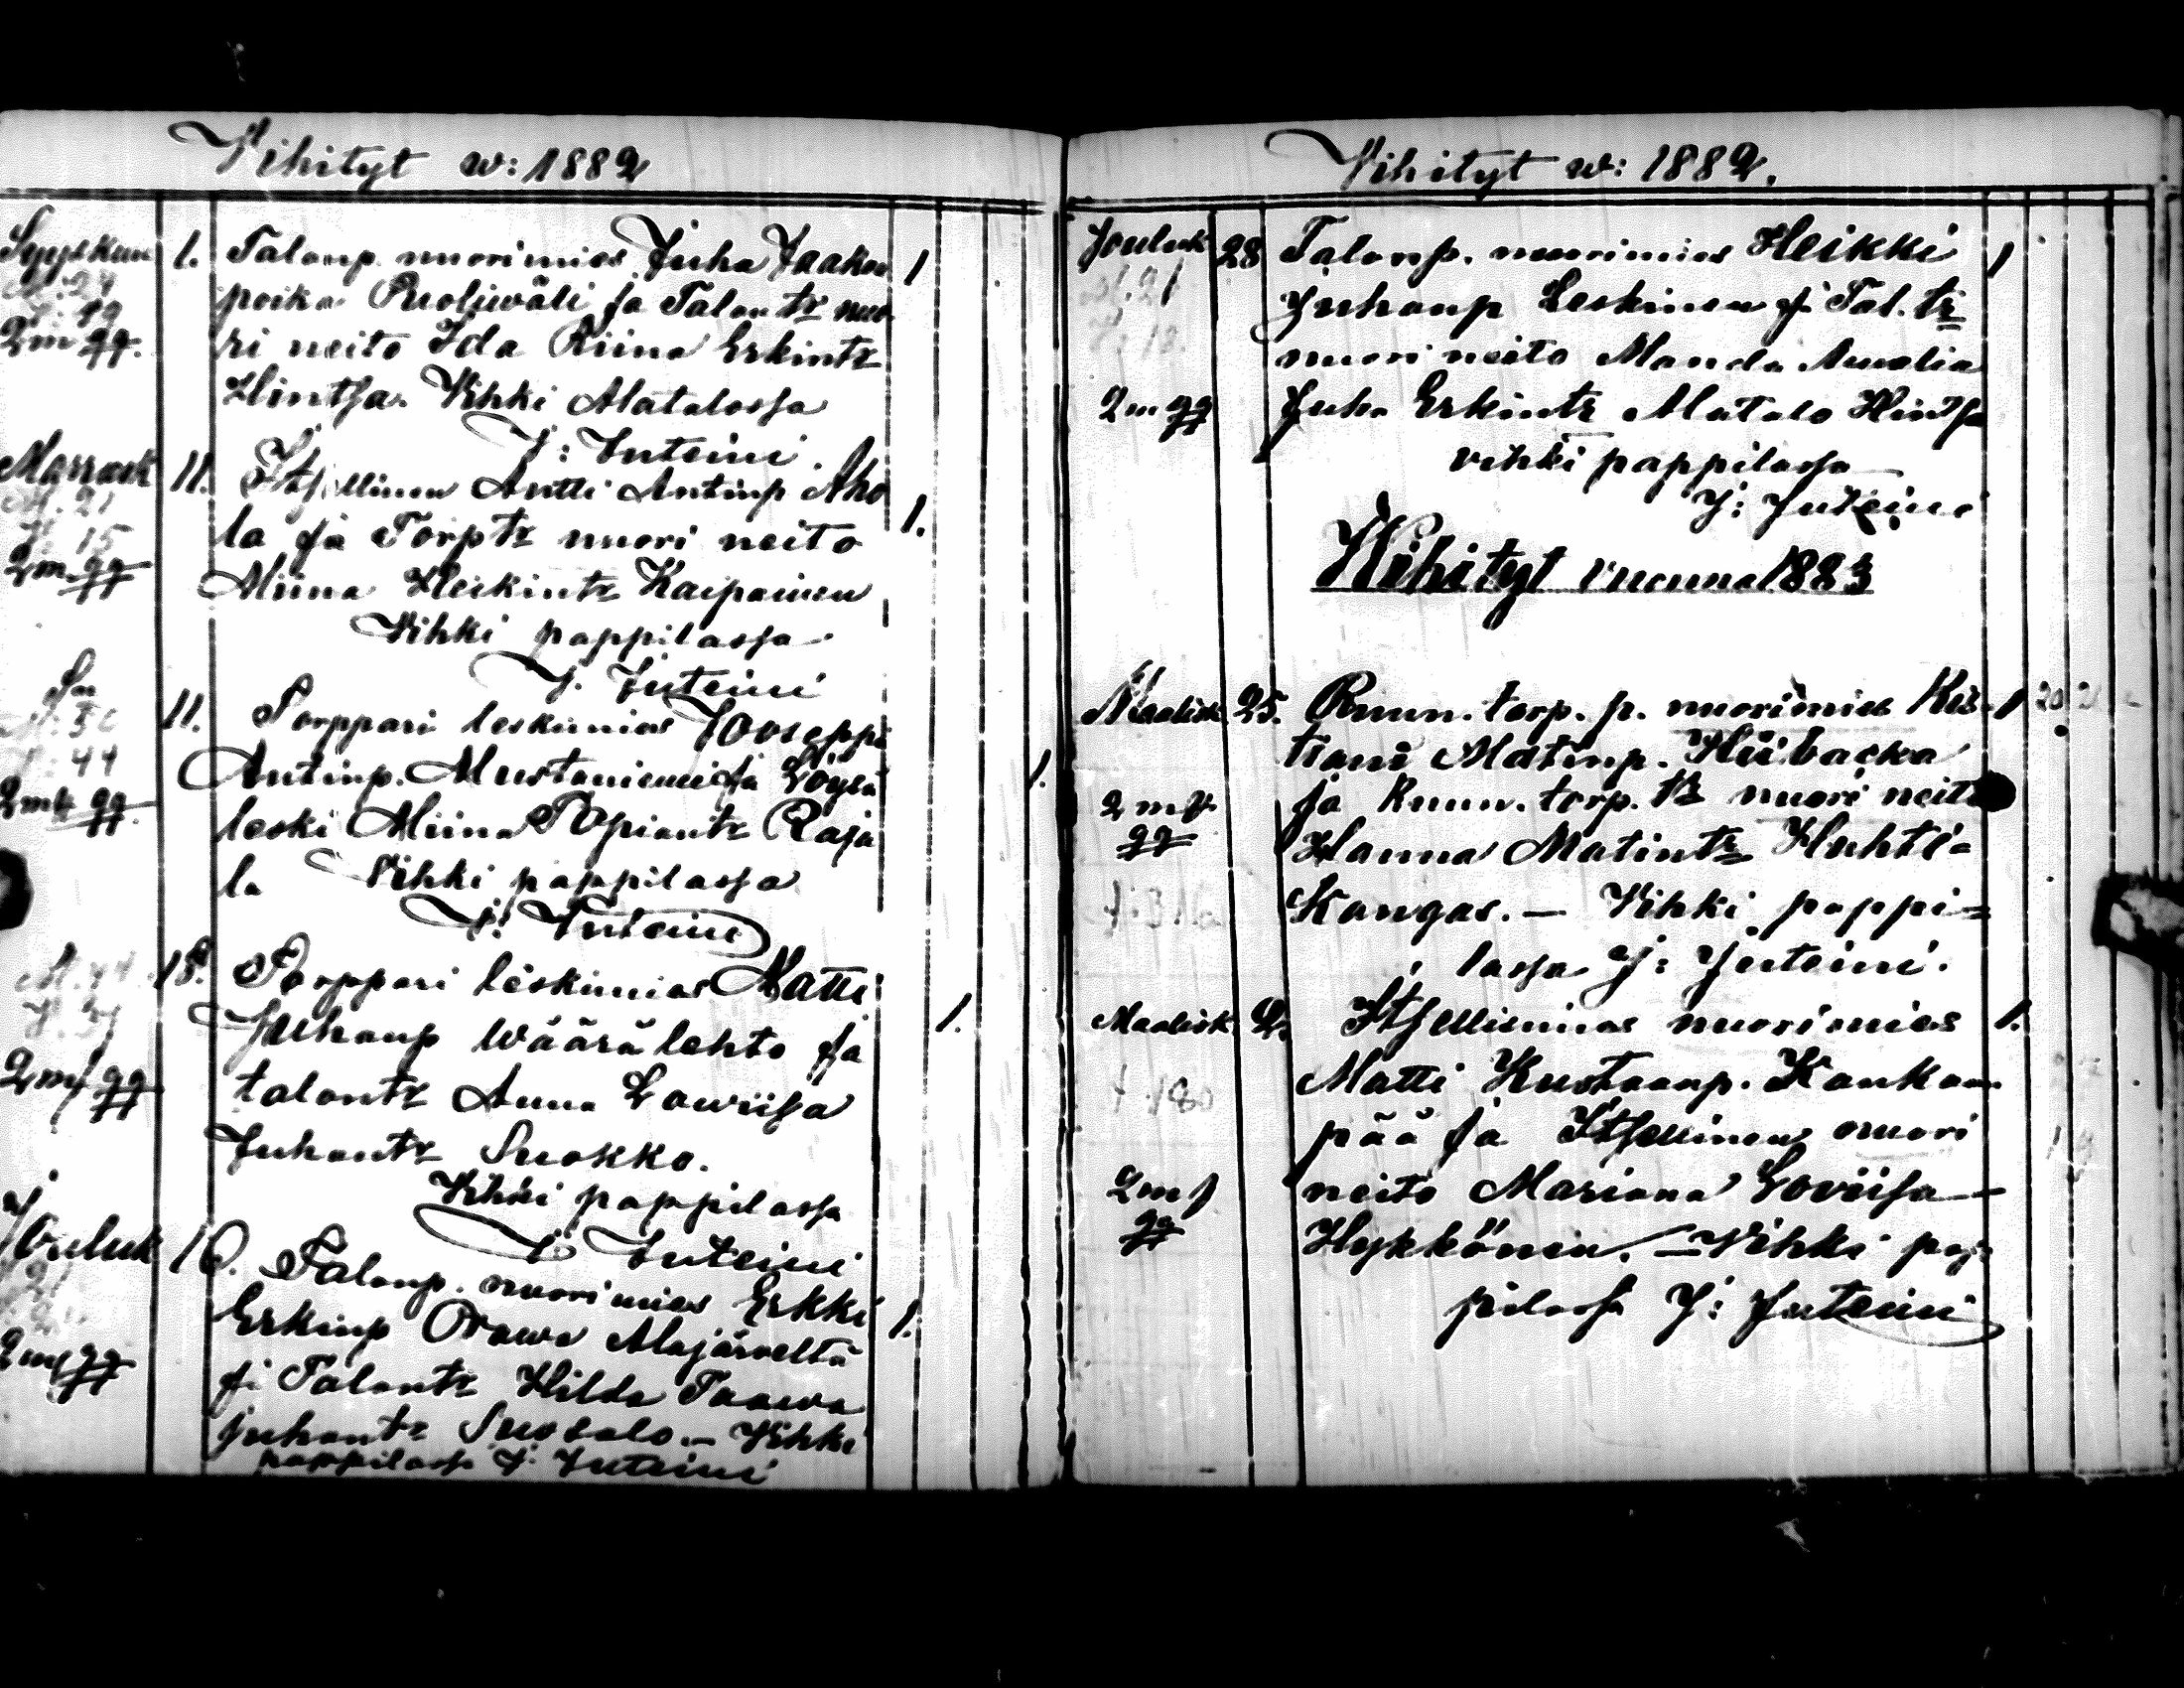 Vihityt w: 1882
Syyskuu 1. Talonp. nuorimies Juha Jaakon 1
poika Puoliwäli ja Talon tr nuo
2 m gg. ri neito Ida Riina Erkintr
Hintsa. Vihki Alatalossa
J: Juteini.
Marrask 11. Itsellinen Antti Antinp Aho
M. 21
la ja Torptr nuori neito 1.
15
2 m. gg
Miina Heikintr Kaipainen
Vihki pappilassa
J. Juteini
11. Torppari leskimies Jooseppi
44
Antinp. Mustaniemi ja Löysä 1.
2 mk gg.
leski Miina Topiantr Raja
la Vihki pappilassa
J. Juteini
M. 44 18. Torppari leskimies Matti
Juhanp Wäärälehto ja 1.
2 mk gg
talontr Anna Lowiisa
Juhantr Suokko.
Vihki pappilassa
J: Juteini
Jouluk 16. Talonp. nuorimies Erkki
Erkinp Orawa Alajärveltä 1.
2 mk gg
ja Talontr Hilda Taawa
Juhantr Suosalo. — Vihki
pappilassa J: Juteini
Vihityt w: 1882.
Jouluk 28 Talonp. nuorimies Heikki 1
Juhanp Leskinen ja Tal. tr
nuori neito Manda Amalia
2 m gg Juha Erkintr Alatalo Hintsa
vihki pappilassa
J: Juteini
Vihityt vuonna 1883
Maalisk. 25. Ruun. torp. p. nuorimies Kris- 1 20
tiani Matinp. Hiibacka
2 mk ja Ruun. torp. tr nuori neito
gg Hanna Matintr Huhta-
Kangas. — Vihki pappi=
lassa J: Juteini.
Maalisk 2. Itsellismies nuorimies 1.
Matti Kustaanp. Kankaan
pää ja Itsellinen nuori
2 mk neito Mariana Loviisa —
gg Hykkönen. — Vihki pap=
pilassa J: Juteini